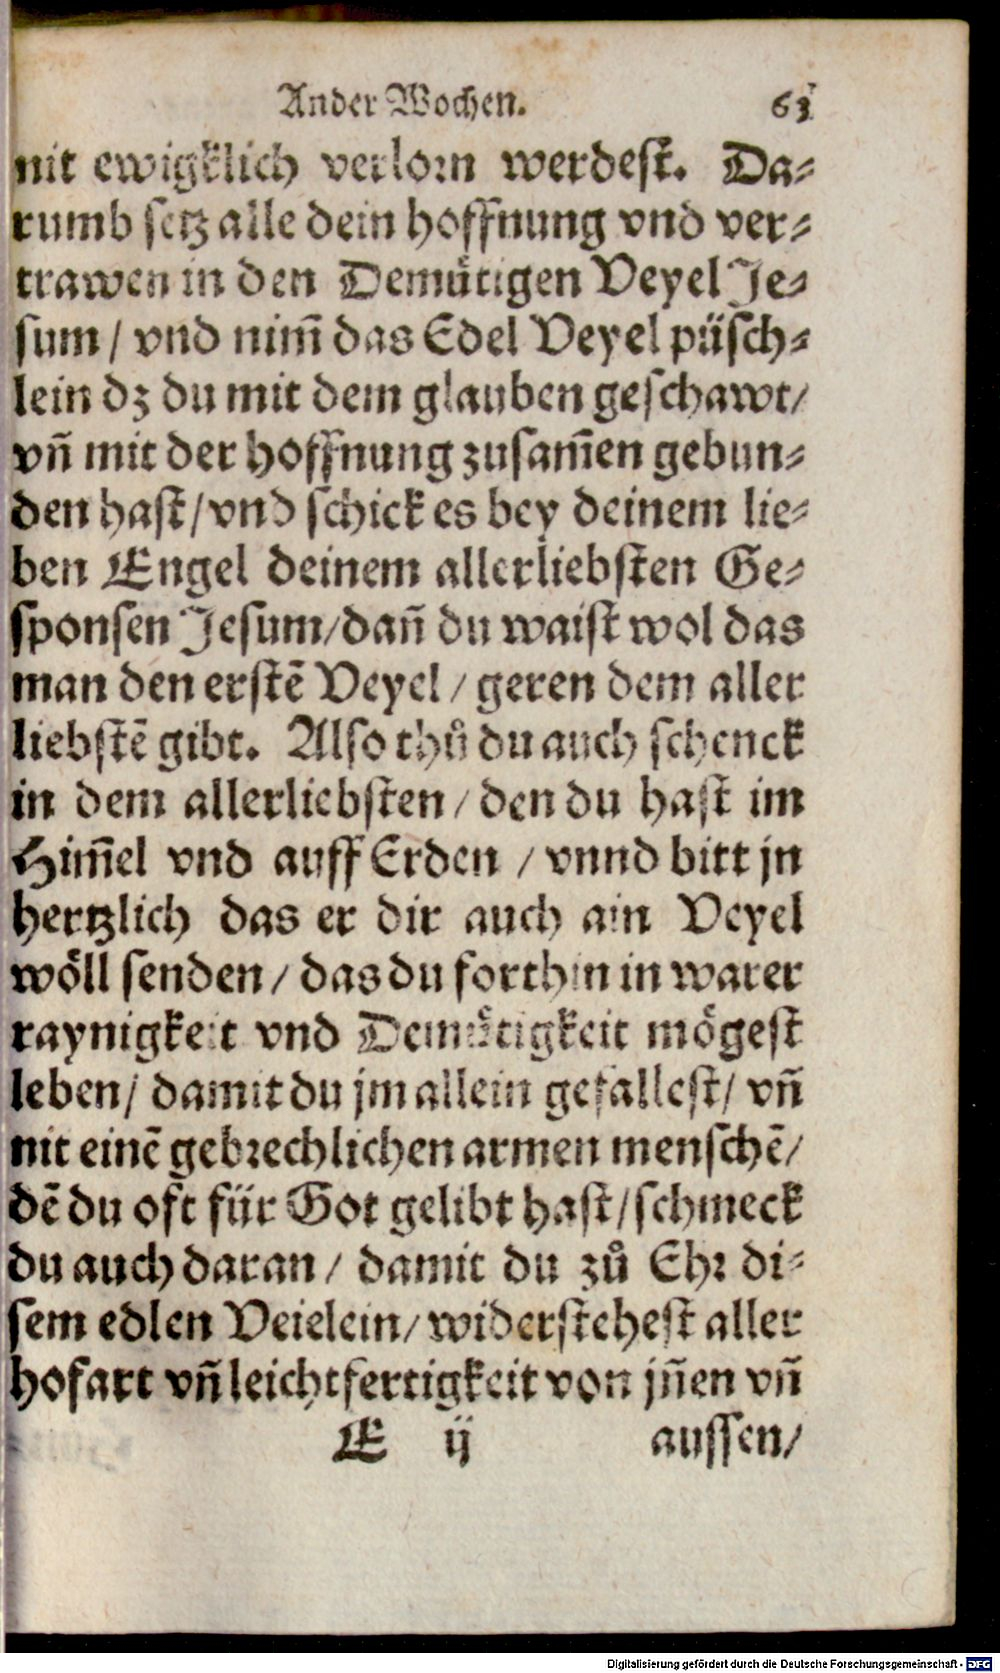 Ander Wochen. 63
nit ewigklich verlorn werdest. Da⸗
rumb setz alle dein hoffnung vnd ver⸗
trawen in den Demuͤtigen Veyel Je⸗
sum / vnd nim̃ das Edel Veyel püsch⸗
lein dz du mit dem glauben geschawt /
vn̄ mit der hoffnung zusam̃en gebun⸗
den hast / vnd schick es bey deinem lie⸗
ben Engel deinem allerliebsten Ge⸗
sponsen Jesum / dan̄ du waist wol das
man den erstē Veyel / geren dem aller
liebstē gibt. Also thuͦ du auch schenck
in dem allerliebsten / den du hast im
Him̃el vnd auff Erden / vnnd bitt jn
hertzlich das er dir auch ain Veyel
woͤll senden / das du forthin in warer
raynigkeit vnd Demuͤtigkeit moͤgest
leben / damit du jm allein gefallest / vn̄
nit einē gebrechlichen armen menschē /
dē du oft für Got gelibt hast / schmeck
du auch daran / damit du zuͦ Ehr di⸗
sem edlen Veielein / widerstehest aller
hofart vn̄ leichtfertigkeit von jn̄en vn̄
E ij aussen /
Digitalisierung gefördert durch die Deutsche Forschungsgemeinschaft - DFG